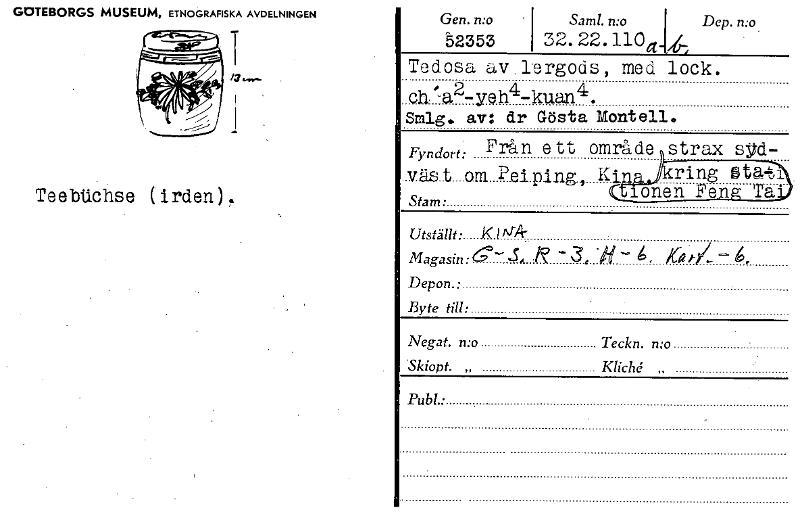 GÖTEBORGS MUSEUM, ETNOGRAFISKA AVDELNINGEN
13 cm
Teebüchse (irden).
Gen. n:o Saml. n:o Dep. n:o
52353 32.22.110 a-b.
Tedosa av lergods, med lock.
ch´a2-yeh4-kuan4.
Smlg. av: dr Gösta Montell.
Fyndort: Från ett område strax syd-
väst om Peiping, Kina. kring stati
tionen Feng Tai
Stam:
Utställt: KINA
Magasin: G-S. R-3. H-6. Kart.-6.
Depon.:
Byte till:
Negat. n:o Teckn. n:o
Skiopt. „ Kliché „
Publ.: